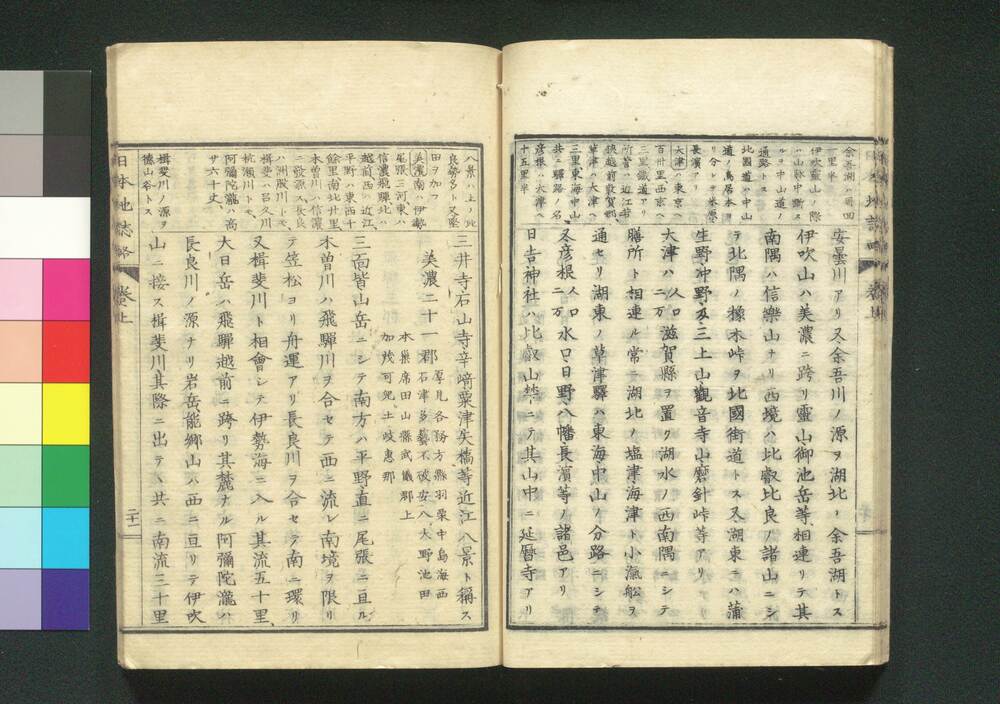 安曇川アリ又余吾川ノ源ヲ湖北ノ余吾湖トス
伊吹山ハ美濃ニ跨リ靈山御池岳等相連リテ其
南隅ハ信樂山ナリ西境ハ比叡比良ノ諸山ニシ
テ北隅ノ橡木峠ヲ北國街道トス又湖東ニハ蒲
生野冲野及三上山觀音寺山磨針峠等アリ
大津ハ人口二万滋賀縣ヲ置ク湖水ノ西南隅ニシテ
膳所ト相連ル常ニ湖北ノ塩津海津ト小滊舩ヲ
通セリ湖東ノ草津驛ハ東海中山ノ分路ニシテ
又彦根人口二万水口日野八幡長濱等ノ諸邑アリ
日吉神社ハ比叡山禁ニテ其山中ニ延暦寺アリ
余吾湖ハ周囲
一里半
伊吹靈山ノ際
ハ山脉中断ス
ルヲ中山道ノ
通路トス
北國道ハ中山
道ノ鳥居本
長濱アリ
大津ハ東京ヘ
百卅里西京ヘ
三里鐵道アリ
草津ハ大津ヘ
三里東海中山
共ニ驛路ノ名
彦根ハ大津ヘ
十五里半
三井寺石山寺辛﨑粟津矢橋等近江八景ト稱ス
美濃二十一郡
厚見各務方縣羽栗中島海西
石津多藝不破安八大野池田
本巣席田山縣武儀郡上
加茂可児土岐惠那
三面皆山岳ニシテ南方ハ平野直ニ尾張ニ亘ル
木曽川ハ飛驒川ヲ合セテ西ニ流レ南境ヲ限リ
テ笠松ヨリ舟運アリ長良川ヲ合セテ南ニ環リ
又楫斐川ト相會シテ伊勢海ニ入ル其流五十里
大日岳ハ飛驒越前ニ跨リ其麓ナル阿彌陀瀧ハ
長良川ノ源ナリ岩岳能郷山ハ西ニ亘リテ伊吹
山ニ接ス楫斐川其際ニ出テヽ共ニ南流三十里
八景ハ上ノ此
良勢多ト又堅
田ヲ加フ
美濃南ハ伊勢
尾張三河東ハ
信濃飛驒北ハ
越前西ハ近江
平野ハ東西十
餘里南北廿里
木曽川ハ信濃
ニ發源ス長良
ハ洲股川トモ
楫斐ハ呂久川
杭瀬川トモ
阿彌陀瀧ハ高
サ六十丈
楫斐川ノ源ヲ
德山谷トス
日本地誌略 巻上
二十一